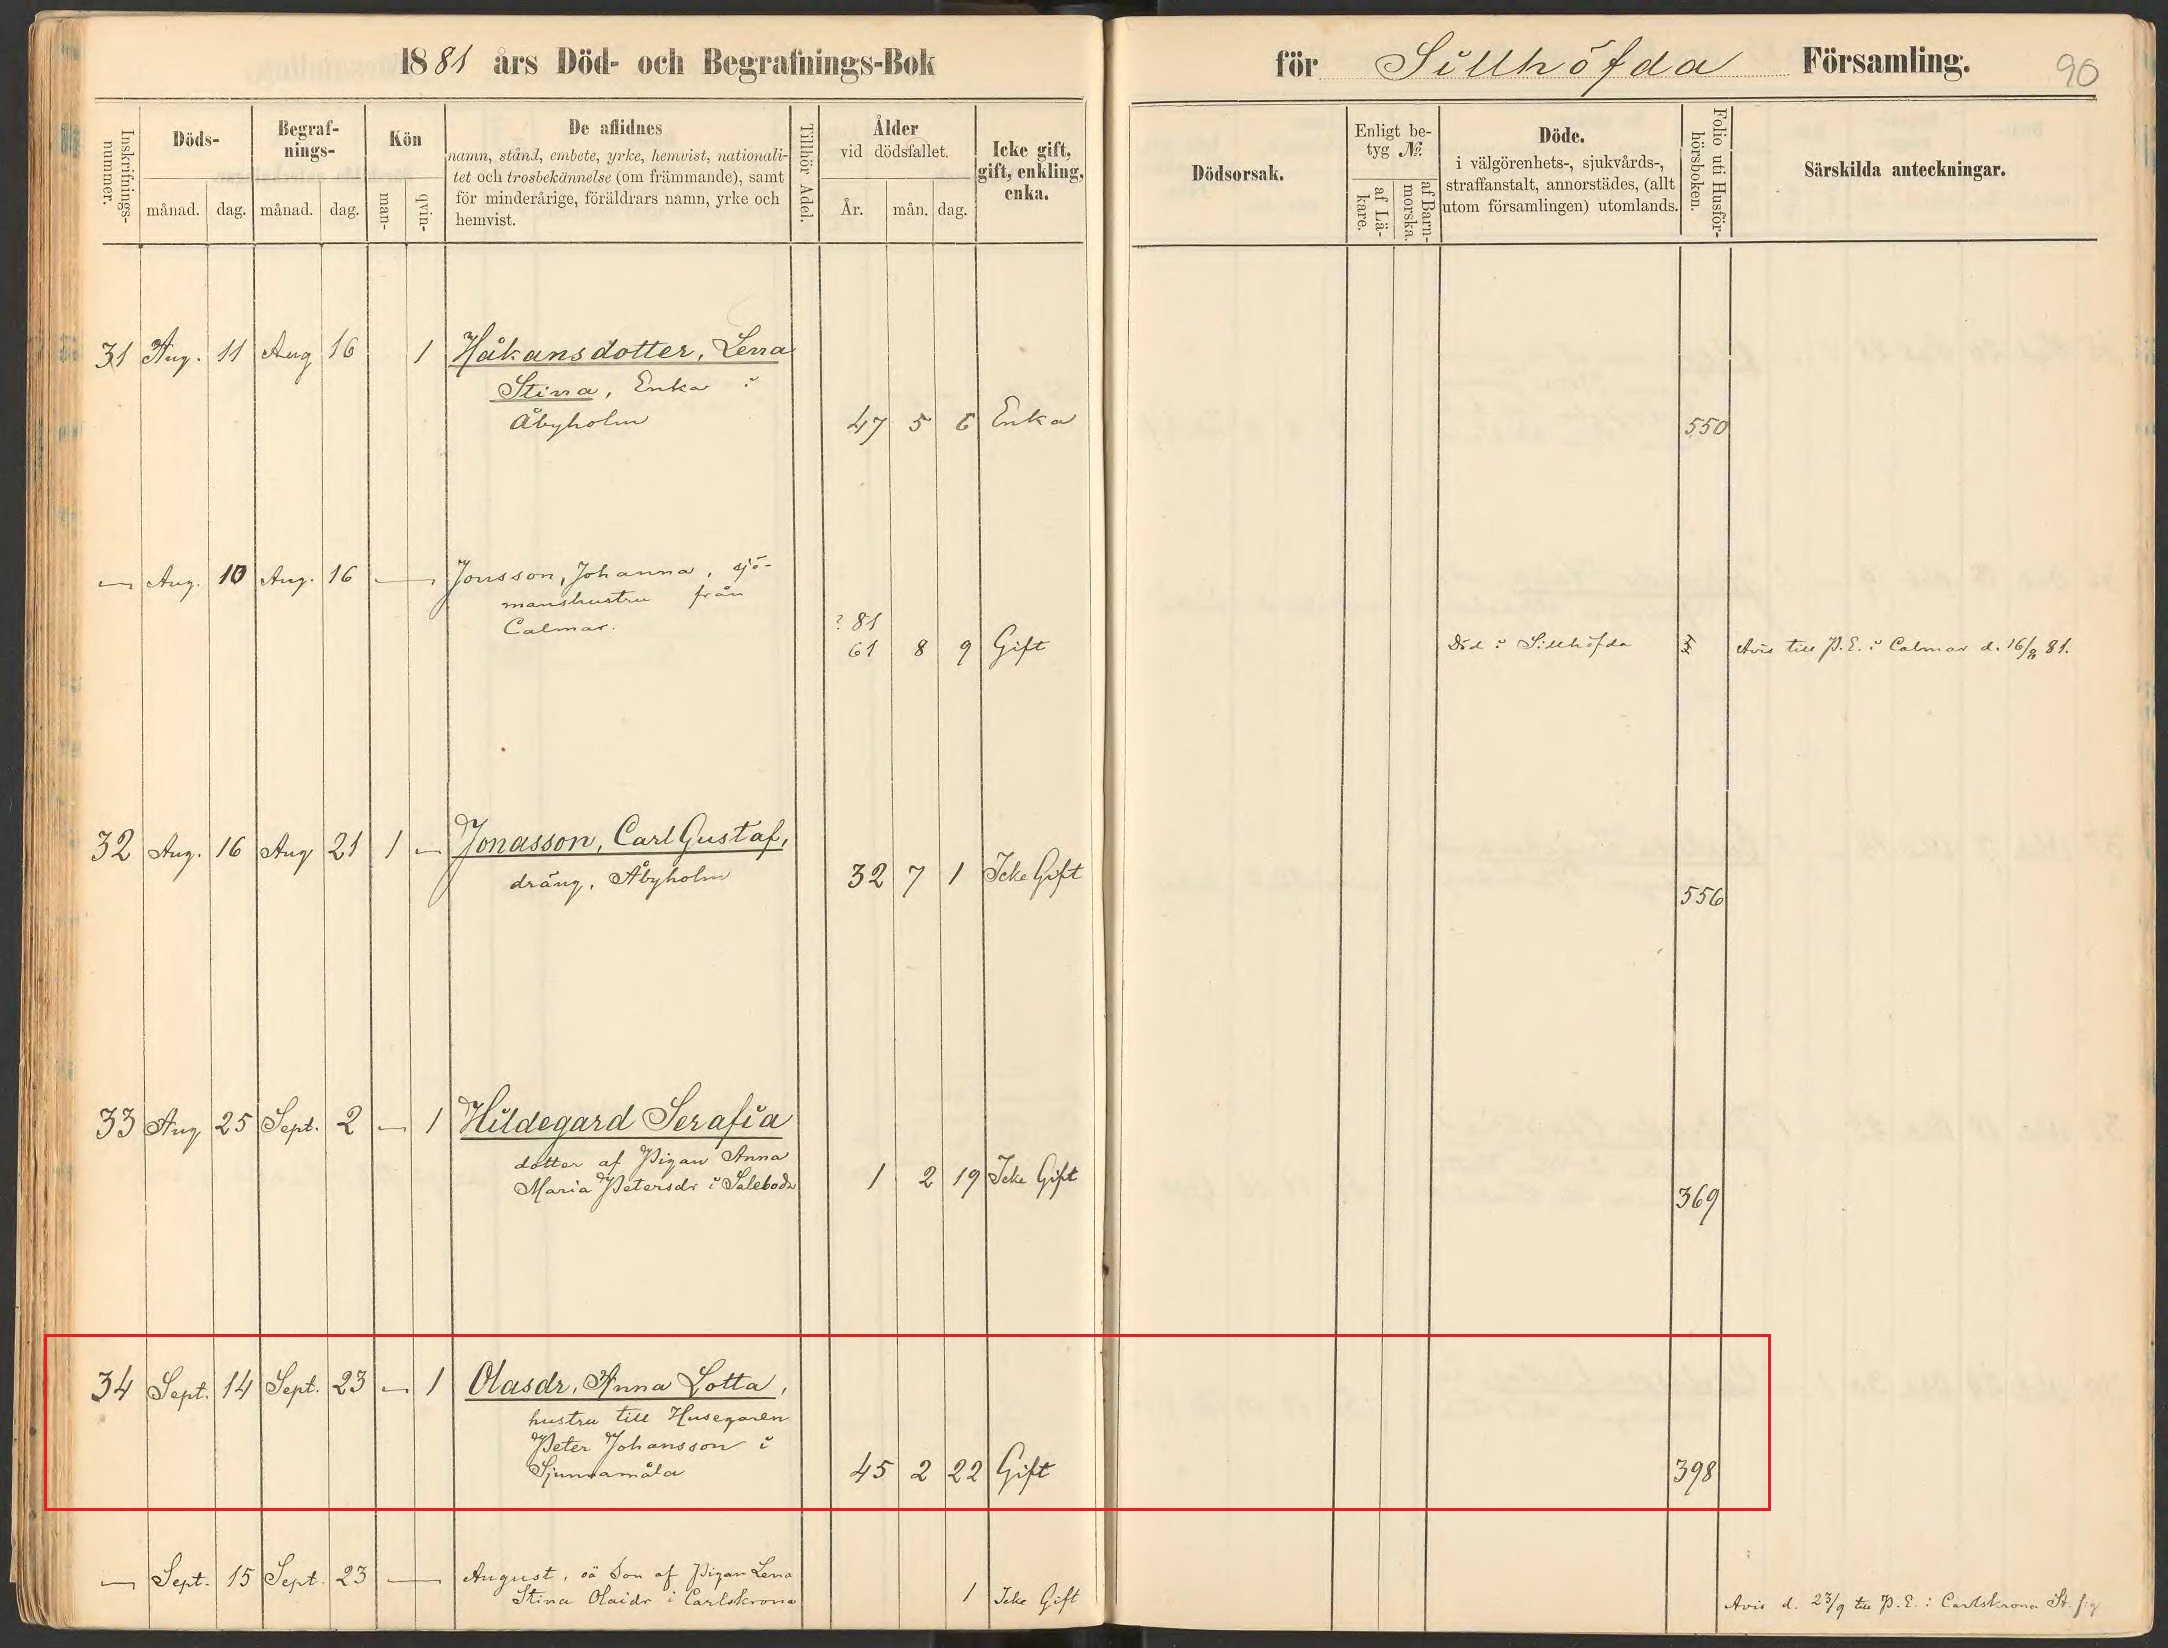 1881 års Död- och Begrafnings-Bok
för Sillhöfda Församling.
90
Inskrifnings-nummer.
Döds-
månad. dag.
Begraf-
nings-
månad. dag.
Kön
man- qvin-
De aflidnes
namn, stånd, embete, yrke, hemvist, nationali-
tet och trosbekännelse (om främmande), samt
för minderårige, föräldrars namn, yrke och
hemvist.
Tillhör Adel.
Ålder
vid dödsfallet.
År. mån. dag.
Icke gift,
gift, enkling,
enka.
Dödsorsak.
Enligt be-
tyg №.
af Lä-
kare.
af Barn-
morska.
Döde.
i välgörenhets-, sjukvårds-,
straffanstalt, annorstädes, (allt
utom församlingen) utomlands.
Folio uti Husför-
hörsboken.
Särskilda anteckningar.
31 Aug. 11 Aug 16 1 Håkansdotter, Lena
Stina, Enka i
Åbyholm 47 5 6 Enka 550
— Aug. 10 Aug. 16 — Jonsson, Johanna, sjö-
manshustru från
Calmar. ? 81
61 8 9 Gift Död i Sillhöfda Avis till P.E. i Calmar d. 16/8 81.
32 Aug. 16 Aug 21 1 — Jonasson, Carl Gustaf,
dräng, Åbyholm 32 7 1 Icke Gift 556
33 Aug 25 Sept. 2 — 1 Hildegard Serafia
dotter af Pigan Anna
Maria Petersdr i Saleboda 1 2 19 Icke Gift 369
34 Sept. 14 Sept. 23 — 1 Olasdr, Anna Lotta,
hustru till Husegaren
Peter Johansson i
Sjunnamåla 45 2 22 Gift 398
— Sept. 15 Sept. 23 — August, oä Son af Pigan Lena
Stina Olaidr i Carlskrona 1 Icke Gift Avis d. 23/9 till P.E. i Carlskrona St. f-g